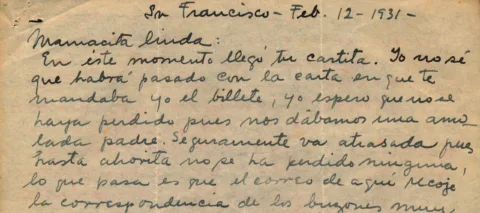 Sn Francisco - Feb. 12 - 1931 -
Mamacita linda:
En este momento llegó tu cartita. Yo no sé
que habrá pasado con la carta en que te
mandaba yo el billete, yo espero que no se
haya perdido pues nos dábamos una amo-
lada padre. Seguramente va atrasada pues
hasta ahorita no se ha perdido ninguna,
lo que pasa es que el correo de aquí recoje
la correspondencia de los buzones muy